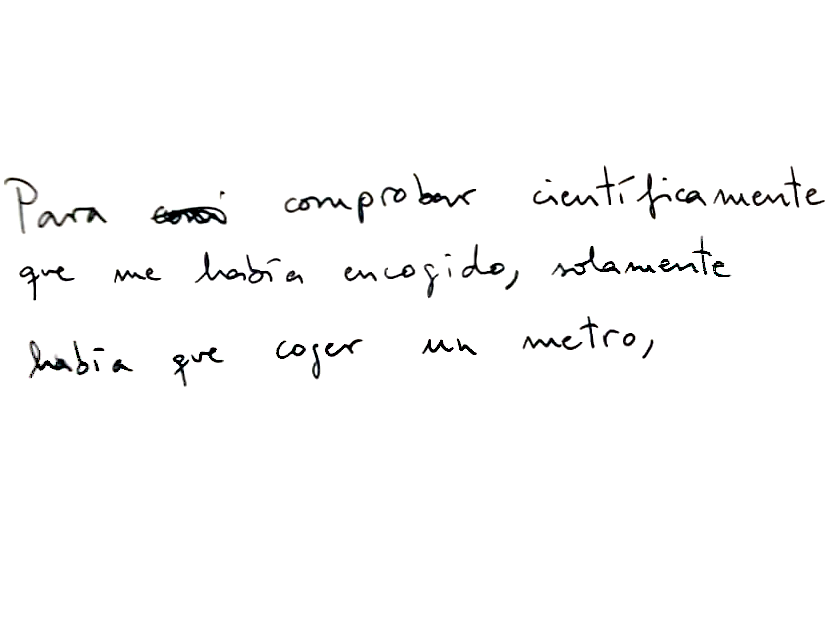 Para comprobar científicamente
que me había encogido, solamente
había que coger un metro,